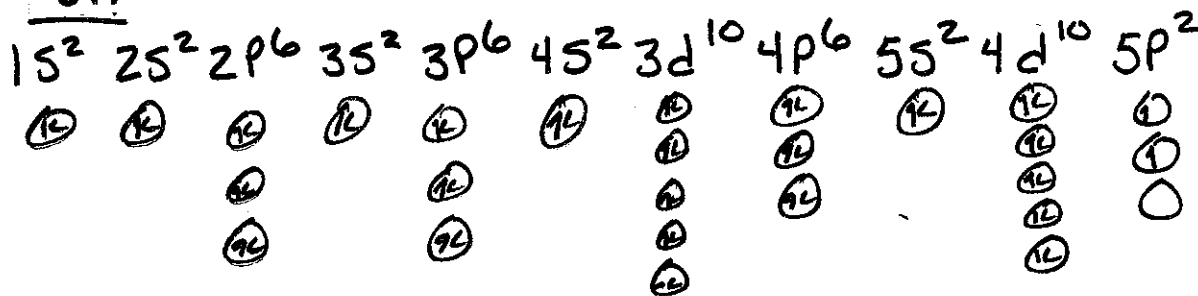 1s² 2s² 2p⁶ 3s² 3p⁶ 4s² 3d¹⁰ 4p⁶ 5s² 4d¹⁰ 5p²